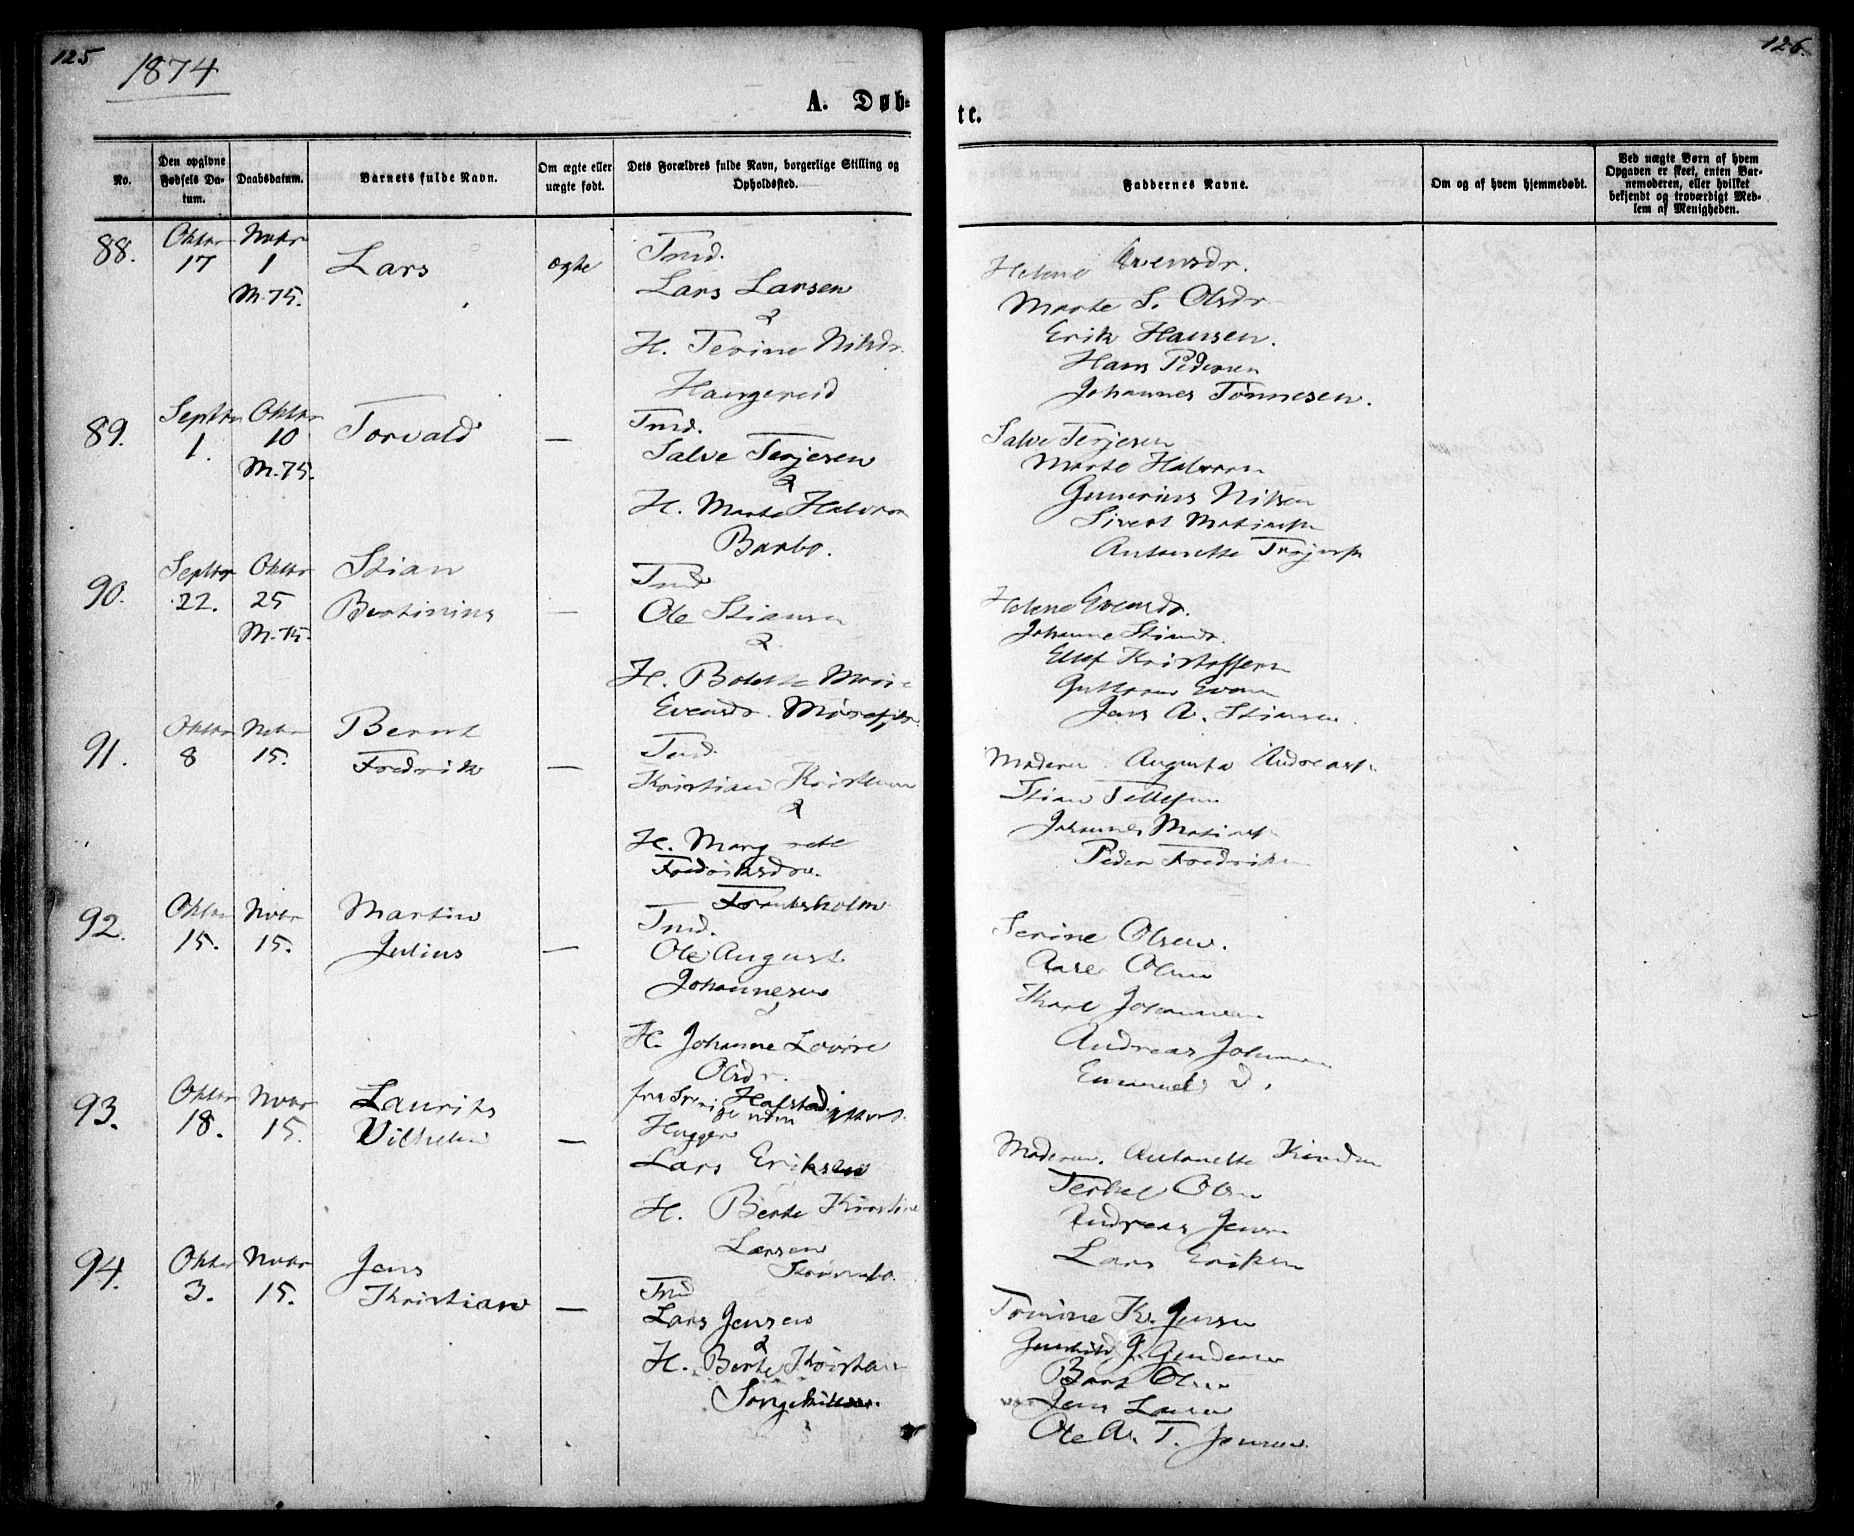 125
1874
126.
A. Døb-
te.
No.
Den opgivne Fødsels Da-
tum.
Daabsdatum.
Barnets fulde Navn.
Om ægte eller
uægte født.
Dets Forældres fulde Navn, borgerlige Stilling og
Opholdssted.
Faddernes Navne.
Om og af hvem hjemmedøbt.
Ved uægte Børn af hvem
Opgaven er skeet, enten Bar-
nemoderen, eller hvilket
bekjendt og troværdigt Med-
lem af Menigheden.
88.
Oktbr
17
Nvbr
1
M. 75.
Lars
ægte
Tmd.
Lars Larsen
&
H. Terine Nilsdr.
Haugereid
Helene Evensdr.
Marte S. Olsdr
Erik Hansen.
Hans Pedersen
Johannes Tønnesen.
89.
Septbr
1.
Oktbr
10
M. 75.
Torvald
—
Tmd.
Salve Terjesen
&
H. Marte Halvorsn
Barbo.
Salve Terjesen
Marte Halvorsn
Gunerius Nilsen
Sivert
Antonette
90.
Septbr
22.
Oktbr
25
M. 75.
Stian
Bertinius
—
Tmd
Ole Stiansen
&
H. Bolette Marie
Evensdr.
Helene Evensdr.
Johanne Stiansdr.
Ellef Kristoffersen
Evensen
Jens A. Stiansen.
91.
Oktbr
8
Nvbr
15.
Bernt
Fredrik
—
Tmd.
Kristian Kristensen
&
H. Margrete
Fredriksdtr.
Moderen. Augusta
Stian Tellefsen
Johannes
Peder Fredriksen
92.
Oktbr
15.
Nvbr
15.
Martin
Julius
—
Tmd.
Ole August
Johannesen
&
H. Johanne Lovise
Olsdr.
Serine Olsen.
Aase Olsen
Karl Johannesen
Andreas Johannesen
Emanuel D.
93.
Oktbr
18.
Nvbr
15.
Laurits
Vilhelm
—
fra
Hugger
Lars Eriksen
H. Berte Kirstine
Larsen
Moderen. Antonette
Terkel Olsen
Andreas Jensen
Lars Eriksen
94.
Oktbr
3.
Nvbr
15.
Jens
Kristian
—
Tmd
Lars Jensen
&
H. Berte
Tomine K. Jensen
Gunhild J.
Olsen
Jens Larsen
Ole A. T. Jensen.